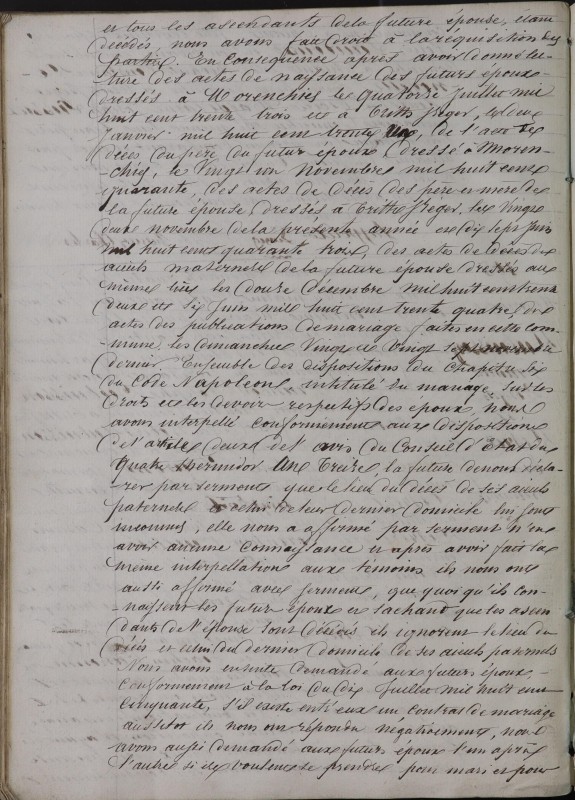 et tous les ascendants de la future épouse, étant
décédés nous avons fait droit à la réquisition des
parties. En conséquence après avoir donné lec-
ture des actes de naissance des futurs époux
dressés à Morenchies le quatorze Juillet mil
huit cent trente trois et à Trith St Léger, le
Janvier mil huit cent trente un, de l'acte de
décès du père du futur époux dressé à Moren-
chies, le vingt un novembre mil huit cent
quarante, des actes de décès des père et mère de
la future épouse dressés à Trith St Léger, les vingt
deux novembre de la présente année et dix sept juin
mil huit cent quarante trois, des actes de décès des
aïeuls maternels de la future épouse dressés aux
mêmes lieu les douze décembre mil huit cent trente
deux et six Juin mil huit cent trente quatre, des
actes des publications de mariage faites en cette com-
mune, les dimanches vingt et vingt sept
dernier. Ensemble des dispositions du chapitre six
du Code Napoléon intitulé du mariage, sur les
droits et les devoirs respectifs des époux, nous
avons interpellé conformément aux dispositions
de l'article deux de l'avis du Conseil d'Etat du
quatre thermidor an treize, la future de nous décla-
rer par serment que le lieu du décès de ses aïeuls
paternels et celui de leur dernier domicile lui sont
inconnus, elle nous a affirmé par serment n'en
avoir aucune connaissance et après avoir fait la
même interpellation aux témoins, ils nous ont
aussi affirmé avec serment, que quoiqu'ils con-
-naissent les futurs époux et sachant que les ascen-
dants de l'épouse sont décédés ils ignorent le lieu du
décès et celui du dernier domicile de ses aïeuls paternels
Nous avons ensuite demandé aux futurs époux,
conformément à la loi du dix Juillet mil huit cent
cinquante, s'il existe entr'eux un contrat de mariage
aussitôt ils nous ont répondu négativement, nous
avons aussi demandé aux futurs époux l'un après
l'autre si ils veulent se prendre pour mari et pour